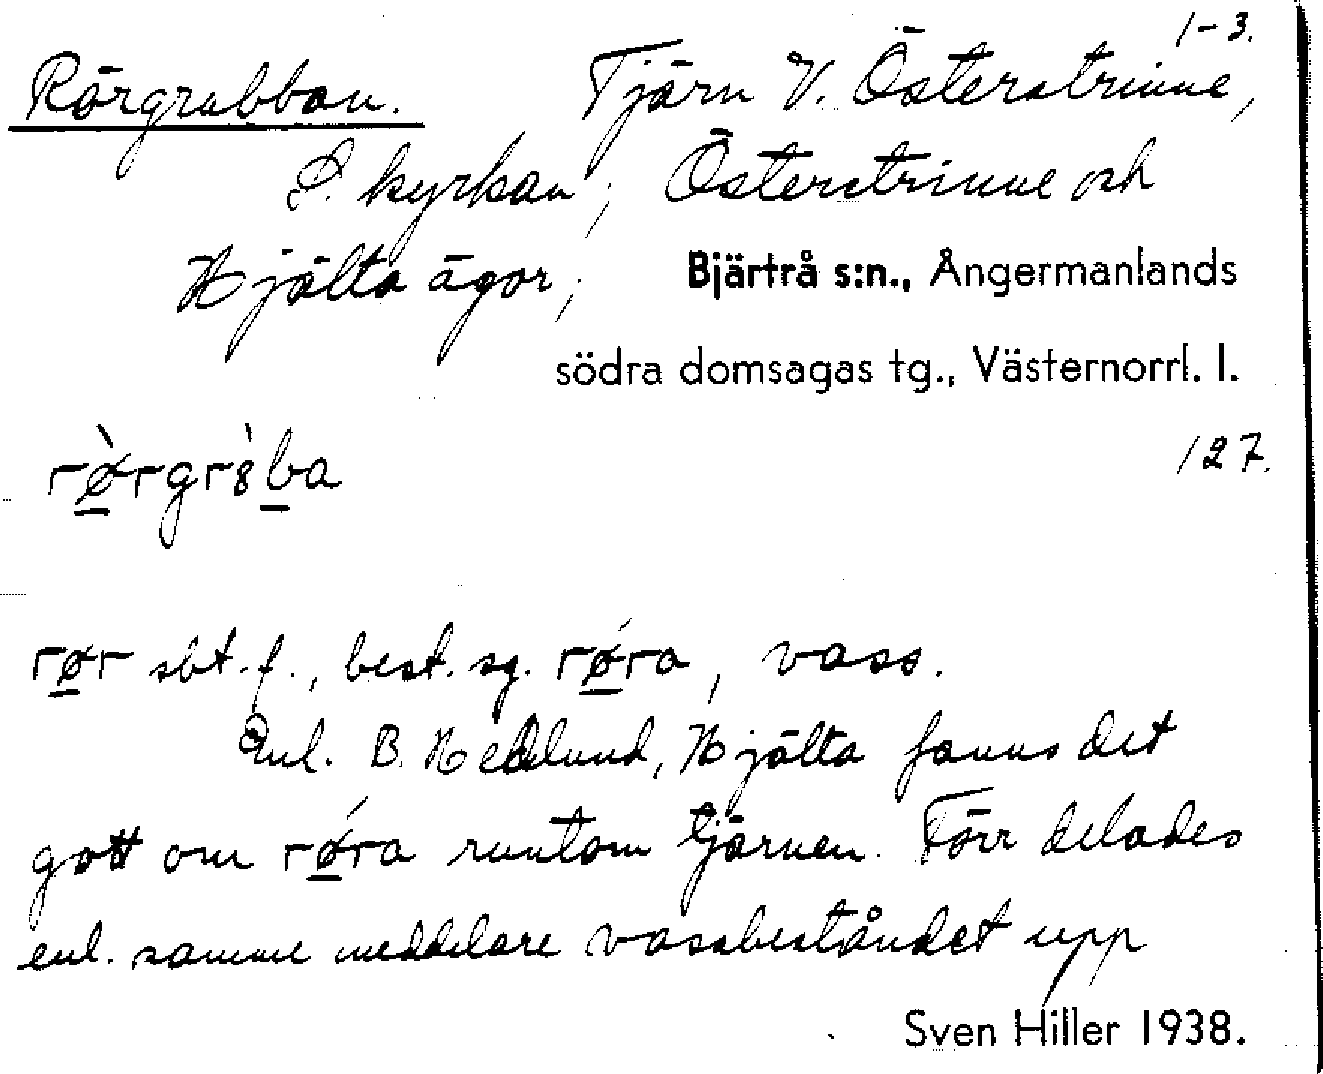 1-3.
Rörgrubban. Tjärn V. Österstrinne,
S. kyrkan, Österstrinne och
Hjälta ägor, Bjärtrå s:n., Ångermanlands
södra domsagas tg., Västernorrl. l.
127.
rø̀rgrȣ̀ba
rør sbt. f., best. sg. rǿra, vass.
Enl. B. Hedlund, Hjälta fanns det
gott om rǿra runtom tjärnen. Förr delades
enl. samme meddelare vassbeståndet upp
Sven Hiller 1938.